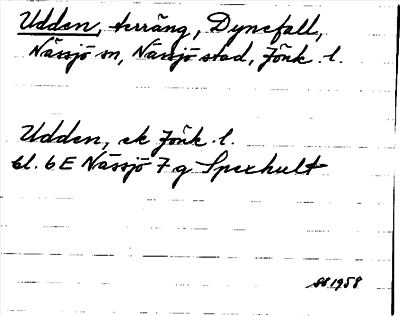 Udden, terräng, Dynefall,
Nässjö sn, Nässjö stad, Jönk. l.
Udden, ek Jönk. l.
bl. 6 E Nässjö 7 g Spexhult
1958